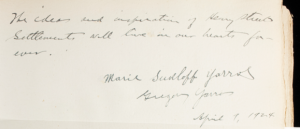 The ideas and inspiration of Henry Street
Settlements will live in our hearts for-
ever.
Marie Sudloff
Gregory
April 9, 1924